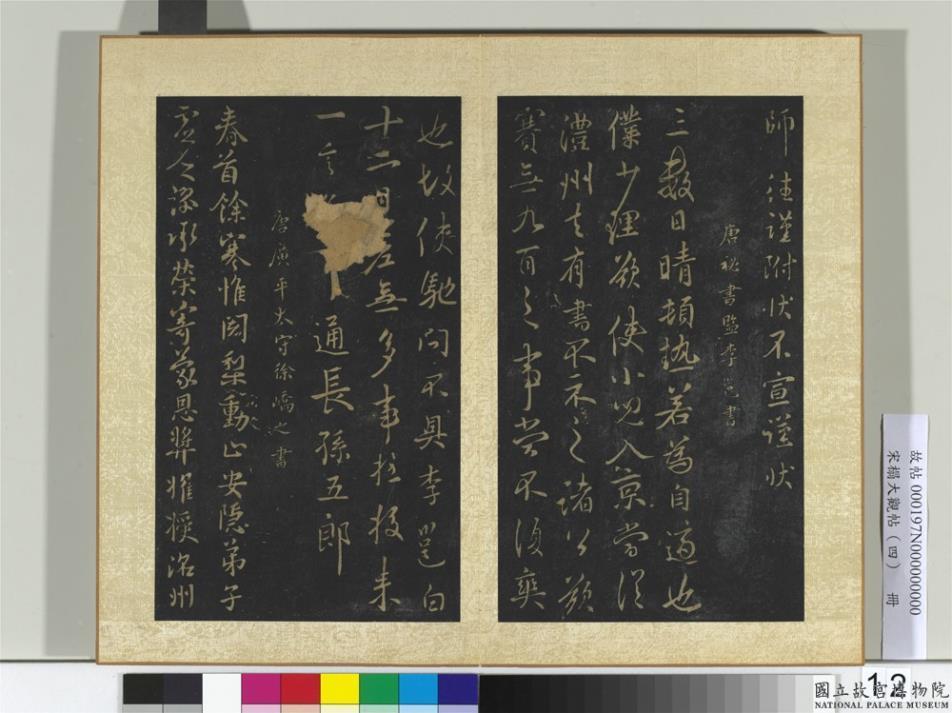 師 往謹附狀不宣謹狀
唐秘書監李邕書
三數日晴頓熱若為自適也
僕少理欲使小兒入京當從
澧州去有書不示之諸公欲
賽無九百之事當不復奭
也故使馳問不具李邕白
十二日 無多事於後來
一言
通長孫五郎
唐廣平太守徐嶠之書
春首餘寒惟闍梨動止安隱弟子
虛乏謬承榮寄蒙恩擢洺州
故帖000197N000000000
宋搨大觀帖(四) 冊
12
國立故宮博物院
NATIONAL PALACE MUSEUM